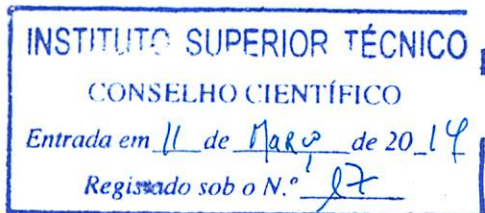 INSTITUTO SUPERIOR TÉCNICO
CONSELHO CIENTÍFICO
Entrada em 11 de Março de 2014
Registado sob o N.º 87